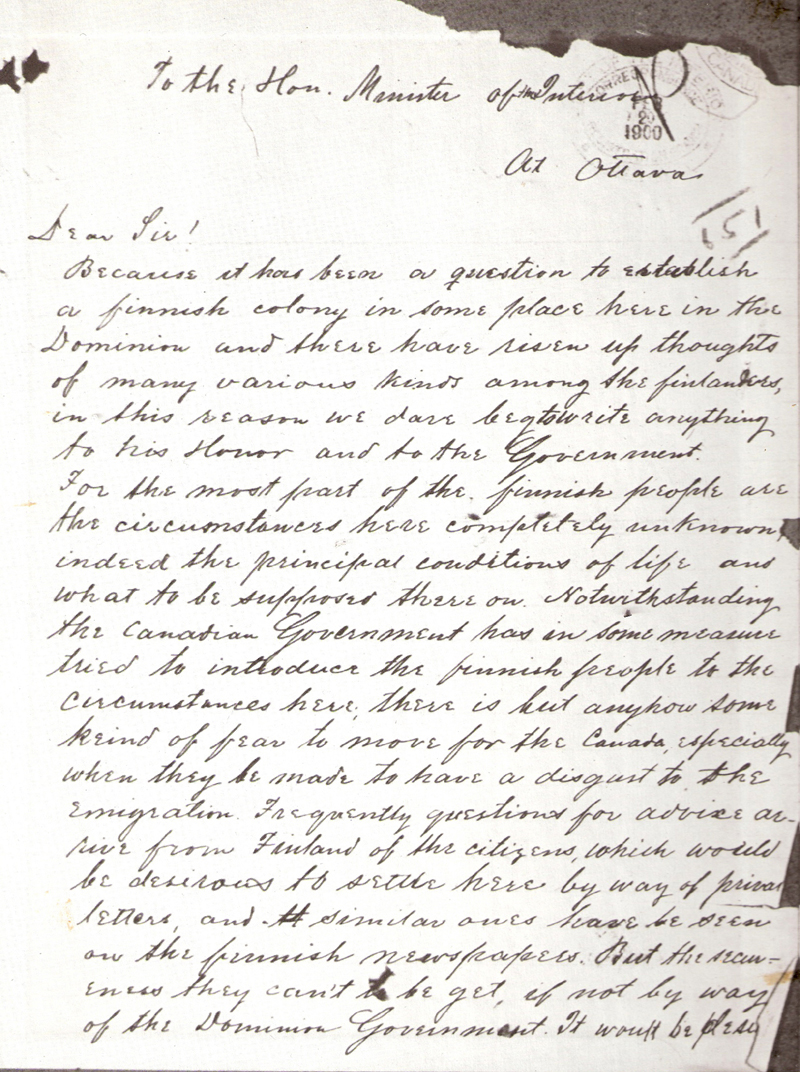 To the Hon. Minister of the Interior
FEB
20
1900
At Ottava
151
Dear Sir!
Because it has been a question to establish
a finnish colony in some place here in the
Dominion and there have risen up thoughts
of many various kinds among the finlanders,
in this reason we dare beg to write anything
to his Honor and to the Government.
For the most part of the finnish people are
the circumstances here completely unknown,
indeed the principal conditions of life and
what to be supposed there on. Notwithstanding
the Canadian Government has in some measure
tried to introduce the finnish people to the
circumstances here, there is but anyhow some
keind of fear to move for the Canada, especially
when they be made to have a disgust to the
emigration. Frequently questions for advice ar-
rive from Finland of the citizens, which would
be desirous to settle here by way of privat
letters, and similar ones have be seen
on the finnish newspapers. But the secur-
eness they can't to be get, if not by way
of the Dominion Government. It would be